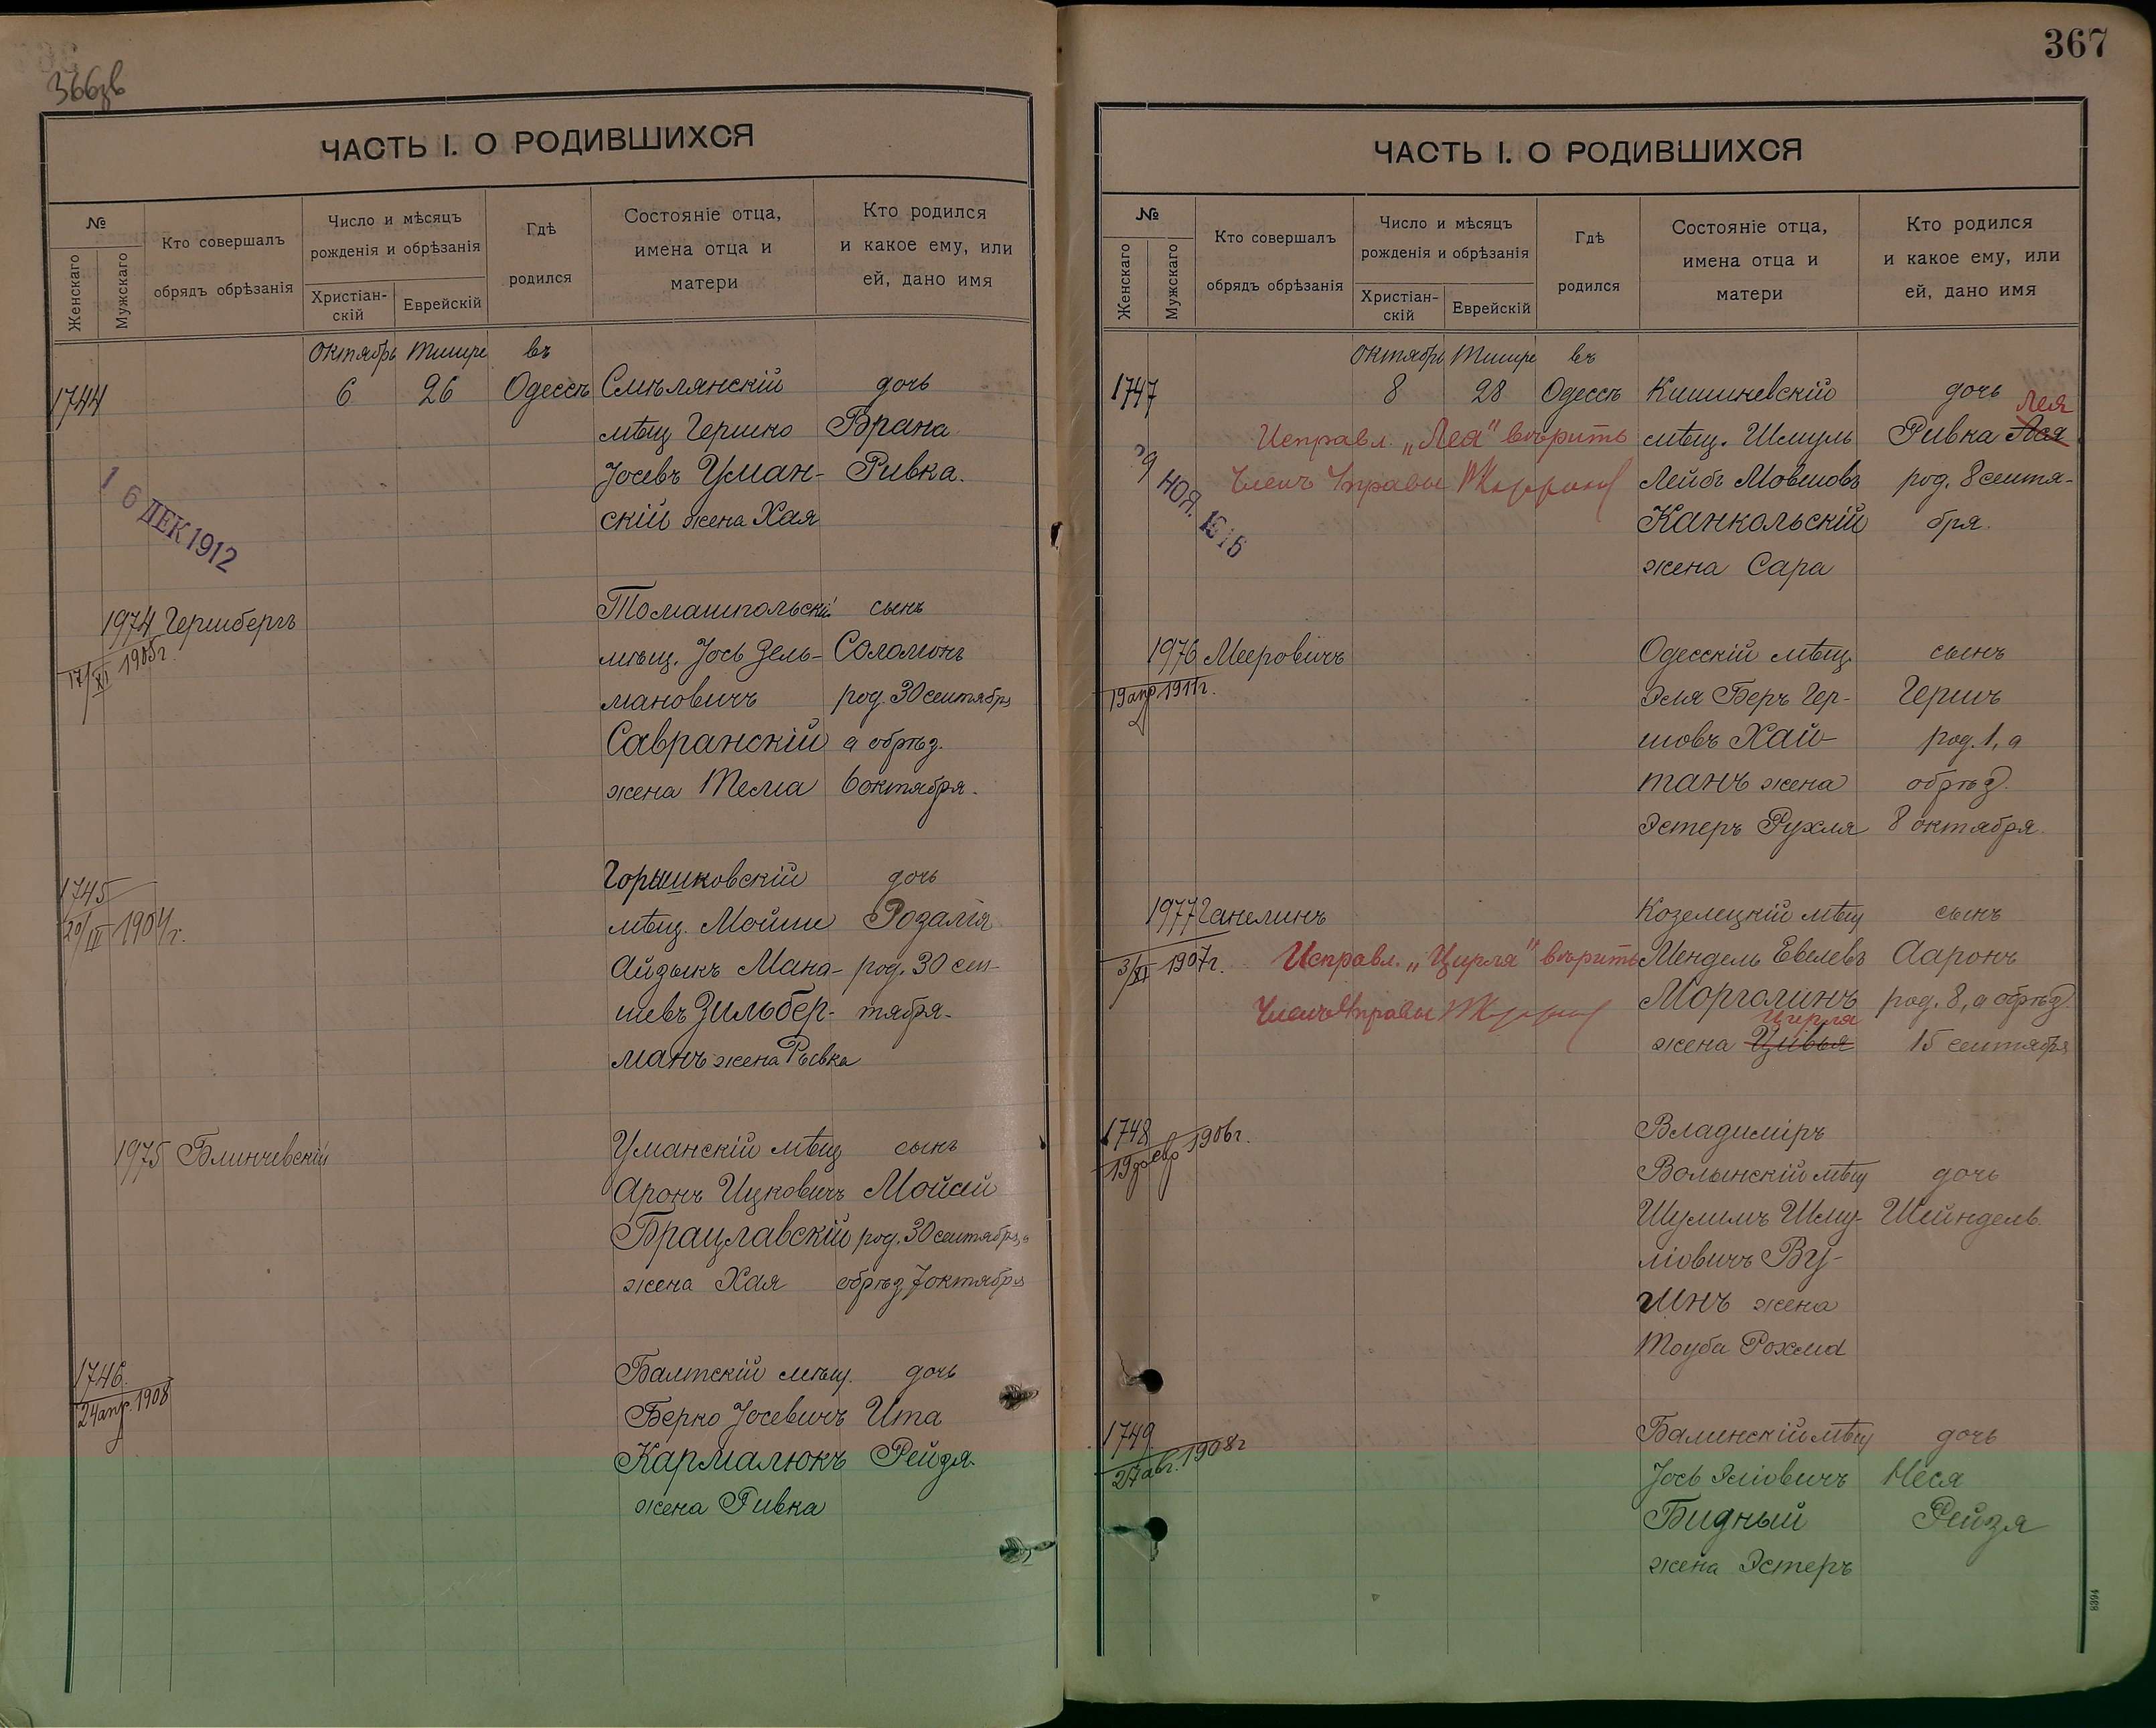 366зв
ЧАСТЬ I. О РОДИВШИХСЯ
№
Женскаго
Мужскаго
Кто совершалъ
обрядъ обрѣзанія
Число и мѣсяцъ
рожденія и обрѣзанія
Христіан-
скій
Еврейскій
Гдѣ
родился
Состояніе отца,
имена отца и
матери
Кто родился
и какое ему, или
ей, дано имя
Октябрь Тишре въ
1744 6 26 Одессѣ Смѣлянскій дочь
мѣщ Гершко Брана
Іосевъ Уман- Ривка.
скій жена Хая
16 ДЕК 1912
1974 Гершбергъ Томашпольскій сынъ
17/XI 1905г. мѣщ. Іось Зель- Соломонъ
мановичъ род. 30 сентябрь
Савранскій а обрѣз.
жена Тема 6 октября.
1745 Горышковскій дочь
20/III 1904г. мѣщ. Мойше Розалія
Айзыкъ Мана- род. 30 сен-
шевъ Зильбер- тября.
манъ жена Рывка
1975 Блинчевскій Уманскій мѣщ сынъ
Аронъ Ицковичъ Мойсей
Брацлавскій род. 30 сентября, а
жена Хая обрѣз 7 октября
1746. Балтскій мѣщ. дочь
24 апр. 1908 Берко Іосевичъ Ита
Кармалюкъ Рейзя.
жена Ривка
367
ЧАСТЬ I. О РОДИВШИХСЯ
№
Женскаго
Мужскаго
Кто совершалъ
обрядъ обрѣзанія
Число и мѣсяцъ
рожденія и обрѣзанія
Христіан-
скій
Еврейскій
Гдѣ
родился
Состояніе отца,
имена отца и
матери
Кто родился
и какое ему, или
ей, дано имя
Октябрь Тишре въ
1747 8 28 Одессѣ Кишиневскій дочь
Лея
Исправл. „Лея" вѣрить мѣщ. Шмуль Ривка
Членъ Управы Лейбъ Мовшовъ род. 8 сентя-
НОЯ. 1916
Канкольскій бря.
жена Сара
1976 Мееровичъ Одесскій мѣщ. сынъ
19 апр 1911г. Эля Беръ Гер- Гершъ
шовъ Хай- род. 1, а
танъ жена обрѣз.
Эстеръ Рухля 8 октября.
1977 Ганелинъ Козелецкій мѣщ сынъ
3/XI 1907г. Исправл. „Цирля" вѣрить Мендель Евелевъ Ааронъ
Членъ Управы Морголинъ род. 8, а обрѣз.
Цирля
жена Цивья 15 сентября
1748 Владиміръ
19 1906г. Волынскій мѣщ дочь
Шулимъ Шму- Шейндель.
ліовичъ Ву-
инъ жена
Тоуба Рохма
1749 Балинскій мѣщ дочь
27 авг. 1908г Іось Эліовичъ Неся
Бидный Рейзя
жена Эстеръ
8394